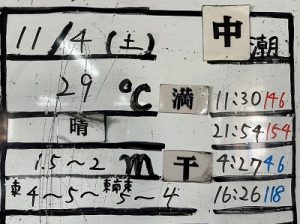 11/4 (土) 中潮
29 ℃ 満 11:30 146
晴 21:54 154
1.5~2 m 干 4:27 46
東 4~5~ 東南東 5~4 16:26 118